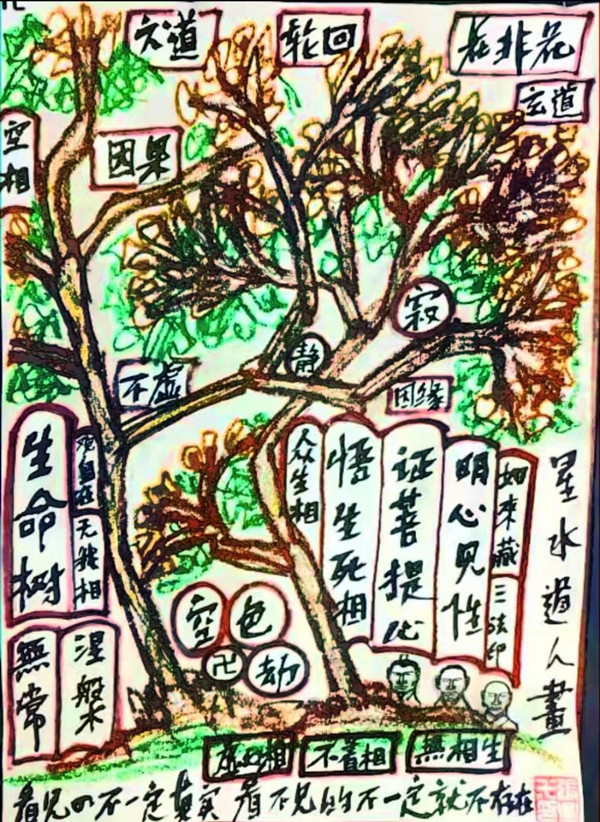 六道
轮回
花非花
玄道
空相
因果
寂
静
不虚
因缘
生命树
观自在
无我相
众生相
悟生死相
证菩提心
明心见性
如来藏
三法印
星水道人畫
空
色
卍
劫
無常
涅槃
不着相
無相生
看见的不一定真实 看不见的不一定就不存在